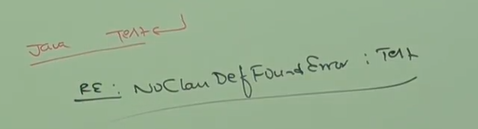 Java Test
RE: NoClassDefFoundError: Test